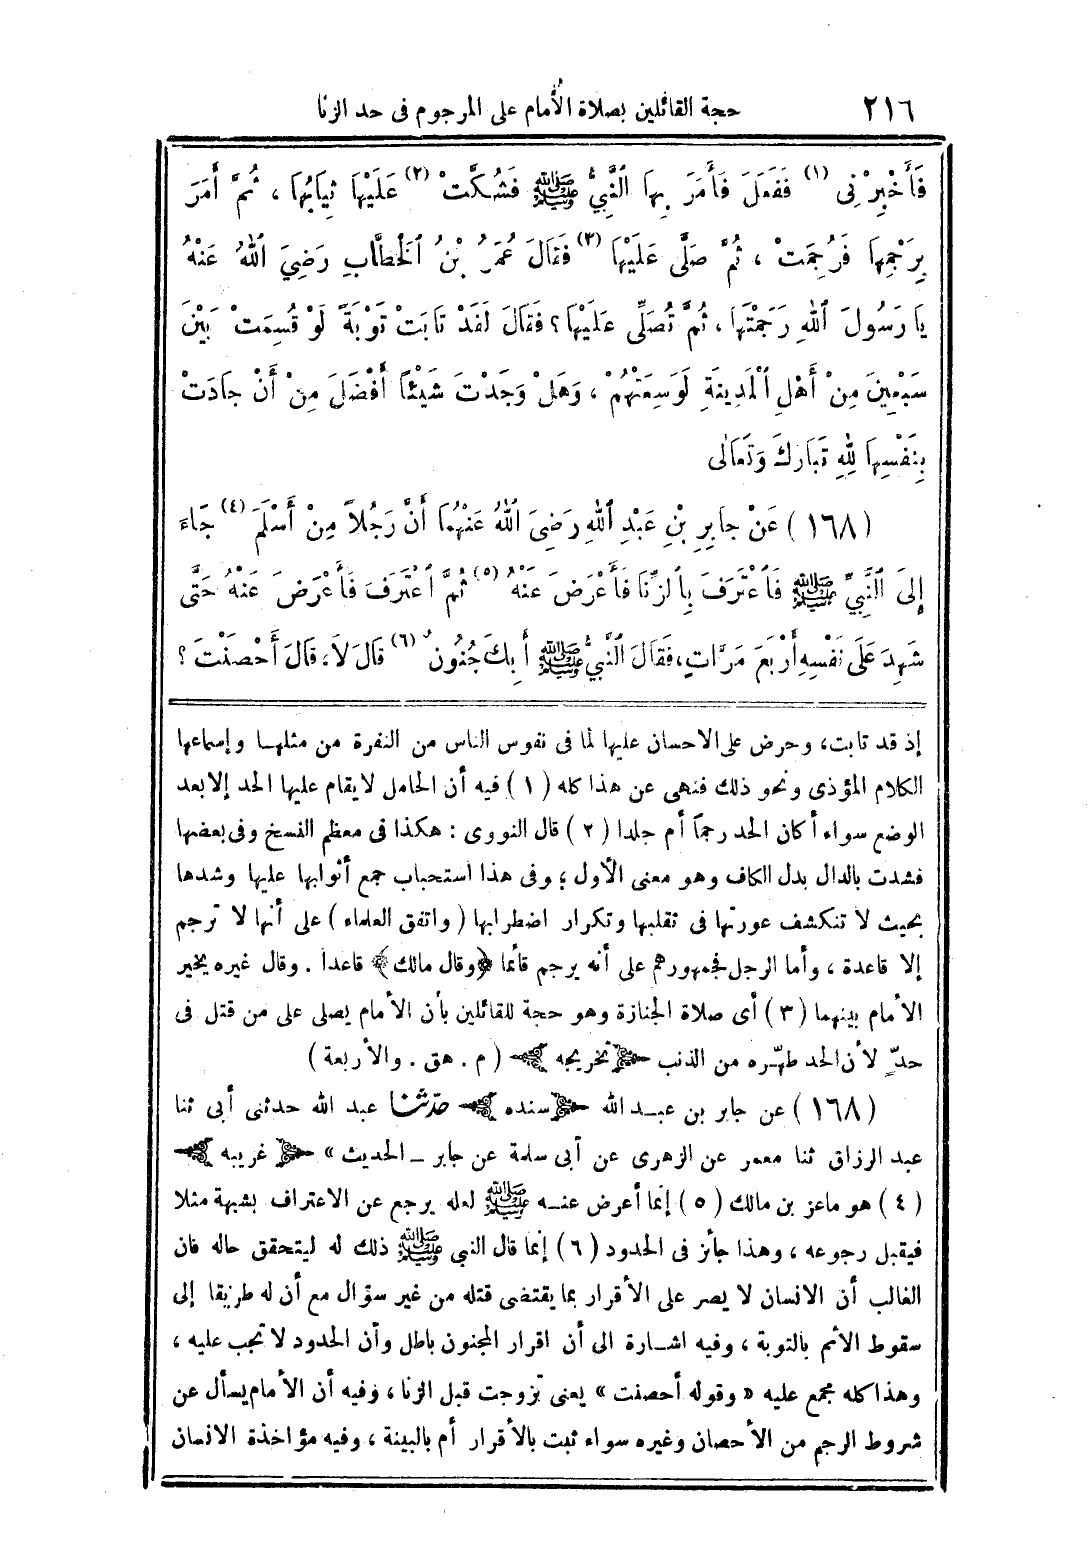 ٢١٦ حجة القائلين بصلاة الأمام على المرجوم فى حد الزنا
فَأَخْبِرْنِى (١) فَفَعَلَ فَأَمَرَ بِهَا ٱلنَّبِيُّ ﷺ فَشُكَّتْ (٢) عَلَيْهَا ثِيَابُهَا ، ثُمَّ أَمَرَ
بِرَجْمِهَا فَرُجِمَتْ ، ثُمَّ صَلَّى عَلَيْهَا (٣) فَقَالَ عُمَرُ بْنُ ٱلْخَطَّابِ رَضِيَ ٱللهُ عَنْهُ
يَا رَسُولَ ٱللهِ رَجَمْتَهَا ، ثُمَّ تُصَلِّى عَلَيْهَا ؟ فَقَالَ لَقَدْ تَابَتْ تَوْبَةً لَوْ قُسِمَتْ بَيْنَ
سَبْعِينَ مِنْ أَهْلِ ٱلْمَدِينَةِ لَوَسِعَتْهُمْ ، وَهَلْ وَجَدْتَ شَيْئًا أَفْضَلَ مِنْ أَنْ جَادَتْ
بِنَفْسِهَا لِلهِ تَبَارَكَ وَتَعَالَى
(١٦٨) عَنْ جَابِرِ بْنِ عَبْدِ ٱللهِ رَضِيَ ٱللهُ عَنْهُمَا أَنَّ رَجُلاً مِنْ أَسْلَمَ (٤) جَاءَ
إِلَى ٱلنَّبِيِّ ﷺ فَاعْتَرَفَ بِالزِّنَا فَأَعْرَضَ عَنْهُ (٥) ثُمَّ اعْتَرَفَ فَأَعْرَضَ عَنْهُ حَتَّى
شَهِدَ عَلَى نَفْسِهِ أَرْبَعَ مَرَّاتٍ، فَقَالَ ٱلنَّبِيُّ ﷺ أَبِكَ جُنُونٌ (٦) قَالَ لاَ، قَالَ أَحْصَنْتَ ؟
إذ قد تابت، وحرض على الاحسان عليها لما فى نفوس الناس من النفرة من مثلهـا وإسماعها
الكلام المؤذى ونحو ذلك فنهى عن هذا كله (١) فيه أن الحامل لا يقام عليها الحد إلا بعد
الوضع سواء أكان الحد رجماً أم جلدا (٢) قال النووى : هكذا فى معظم النسخ وفى بعضها
فشدت بالدال بدل الكاف وهو معنى الأول ؛ وفى هذا استحباب جمع أثوابها عليها وشدها
بحيث لا تنكشف عورتها فى تقلبها وتكرار اضطرابها (واتفق العلماء) على أنها لا ترجم
إلا قاعدة ، وأما الرجل فجمهورهم على أنه يرجم قائما ﴿وقال مالك﴾ قاعدا . وقال غيره يخير
الأمام بينهما (٣) أى صلاة الجنازة وهو حجة للقائلين بأن الأمام يصلى على من قتل فى
حدّ لأن الحد طهّره من الذنب ﴿تخريجه﴾ (م . هق . والأربعة)
(١٦٨) عن جابر بن عبـد الله ﴿سنده﴾ حدّثنا عبد الله حدثنى أبى ثنا
عبد الرزاق ثنا معمر عن الزهرى عن أبى سلمة عن جابر ـ الحديث » ﴿غريبه﴾
(٤) هو ماعز بن مالك (٥) إنما أعرض عنـه ﷺ لعله يرجع عن الاعتراف بشبهة مثلا
فيقبل رجوعه ، وهذا جائز فى الحدود (٦) إنما قال النبي ﷺ ذلك له ليتحقق حاله فان
الغالب أن الانسان لا يصر على الأقرار بما يقتضى قتله من غير سؤال مع أن له طريقا إلى
سقوط الأثم بالتوبة ، وفيه اشـارة الى أن اقرار المجنون باطل وأن الحدود لا تجب عليه ،
وهذا كله مجمع عليه « وقوله أحصنت » يعنى تزوجت قبل الزنا ، وفيه أن الأمام يسأل عن
شروط الرجم من الأحصان وغيره سواء ثبت بالأقرار أم بالبينة ، وفيه مؤاخذة الانسان